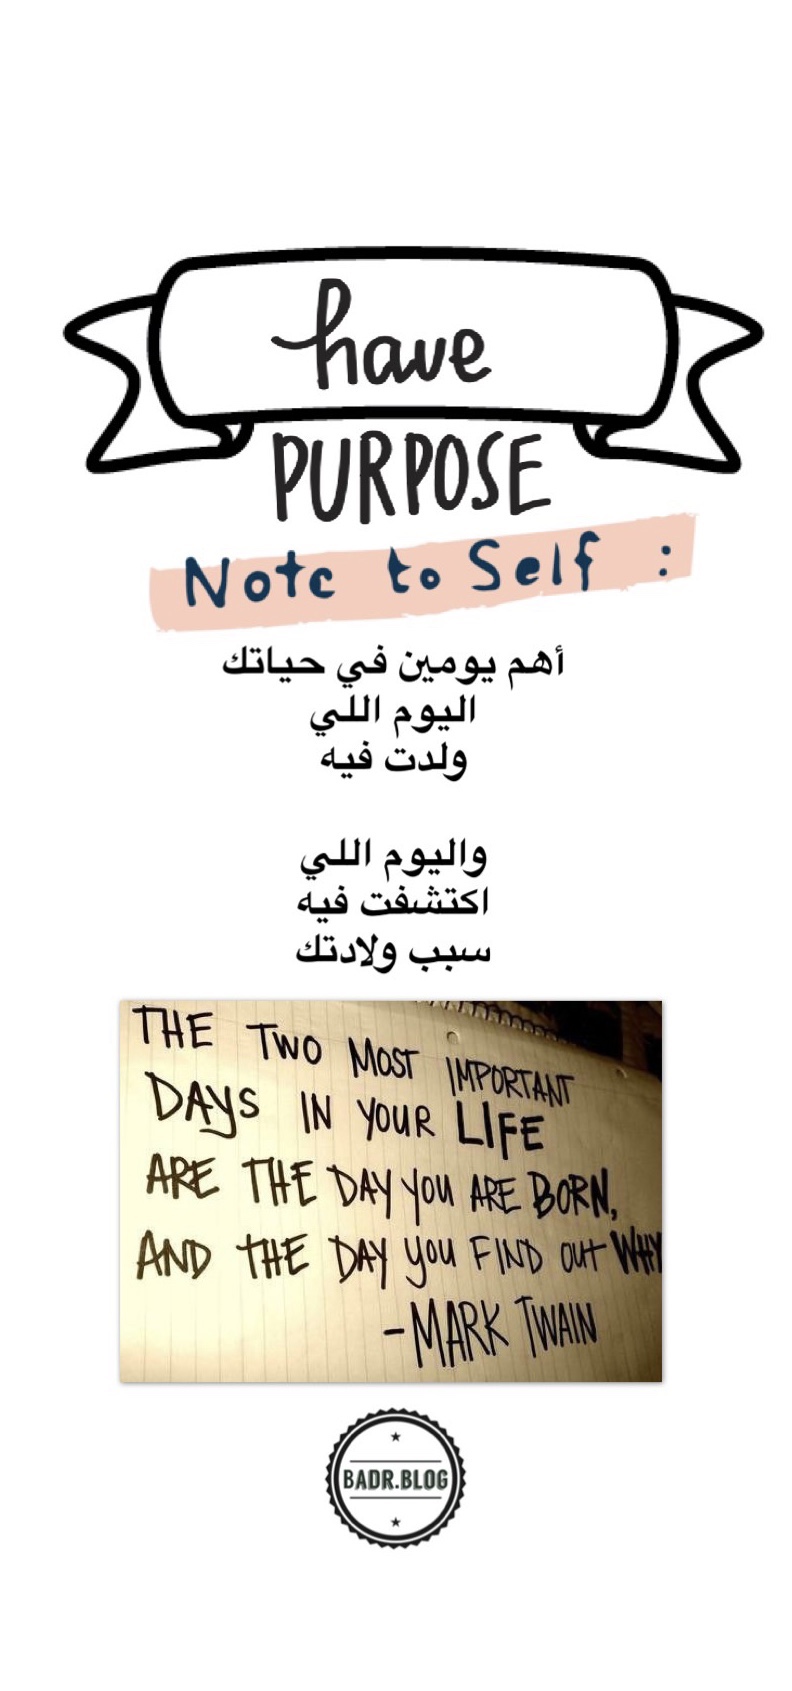 have
PURPOSE
Note to Self :
أهم يومين في حياتك
اليوم اللي
ولدت فيه
واليوم اللي
اكتشفت فيه
سبب ولادتك
THE TWO MOST IMPORTANT
DAYS IN YOUR LIFE
ARE THE DAY YOU ARE BORN,
AND THE DAY YOU FIND OUT WHY
-MARK TWAIN
BADR.BLOG